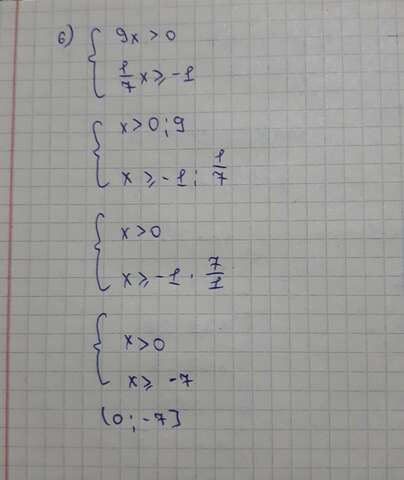 б) { 9x > 0
1/7 x ⩾ -1
{ x > 0 : 9
x ⩾ -1 : 1/7
{ x > 0
x ⩾ -1 · 7/1
{ x > 0
x ⩾ -7
(0 ; -7]